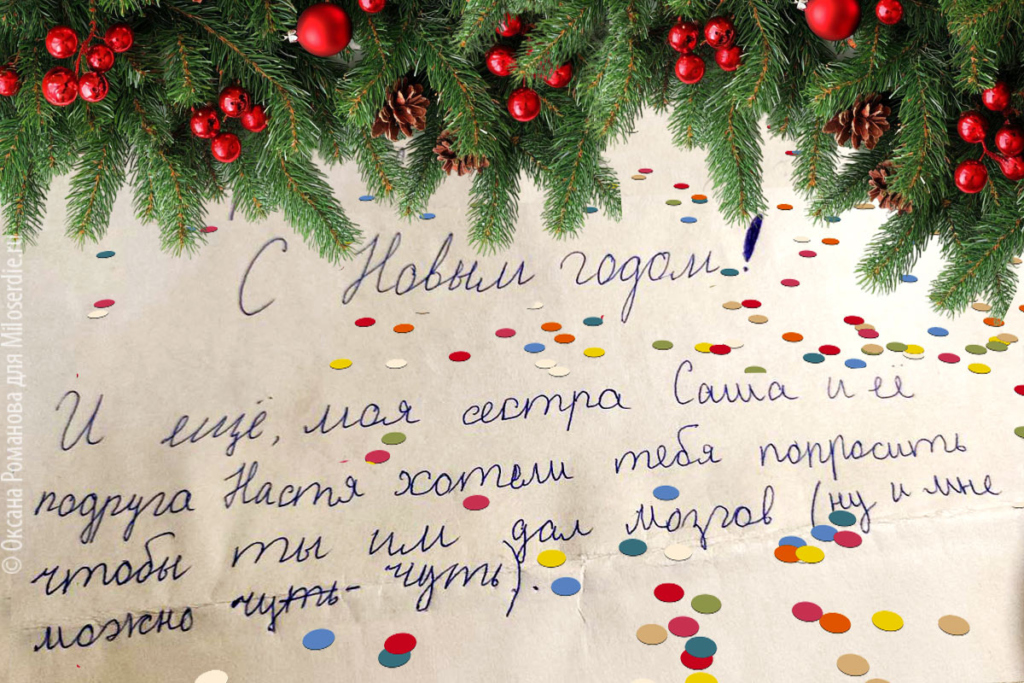 С Новым годом!
И ещё, моя сестра Саша и её
подруга Настя хотели тебя попросить
чтобы ты им дал мозгов (ну и мне
можно чуть-чуть).
© Оксана Романова для Miloserdie.ru